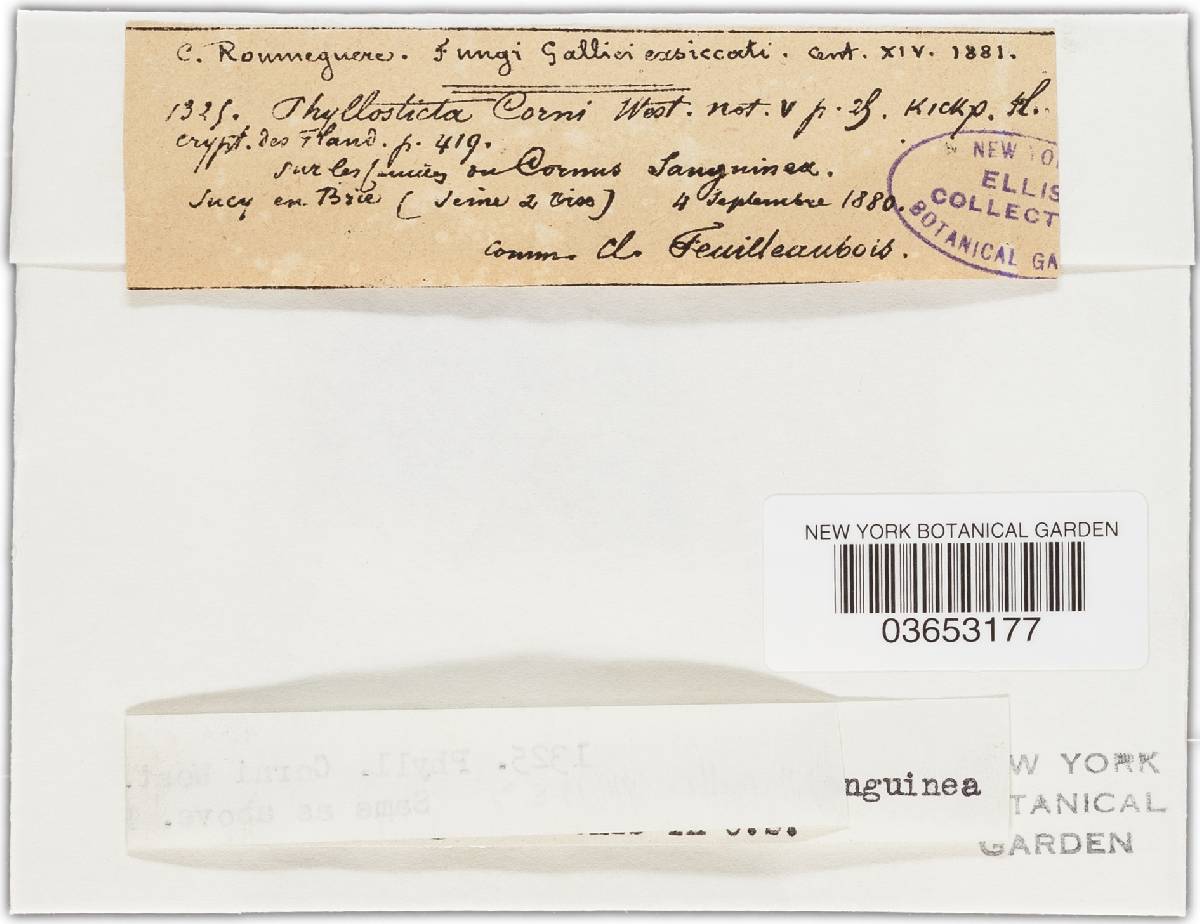 C. Roumeguere. Fungi Gallici exsiccati. Cent. XIV. 1881.
1325. Phyllosticta Corni West. not. V p. 25. Kickp. fl.
crypt. des Fland. p. 419.
sur les du Cornus Sanguinea.
Sucy en Brie ( Seine & Oise) 4 Septembre 1880.
comm. Cl. Feuilleaubois.
NEW YO
ELLIS
COLLECT
BOTANICAL GA
NEW YORK BOTANICAL GARDEN
03653177
1325. Phyll. Corni West.
Same as above.
nguinea
W YORK
TANICAL
GARDEN